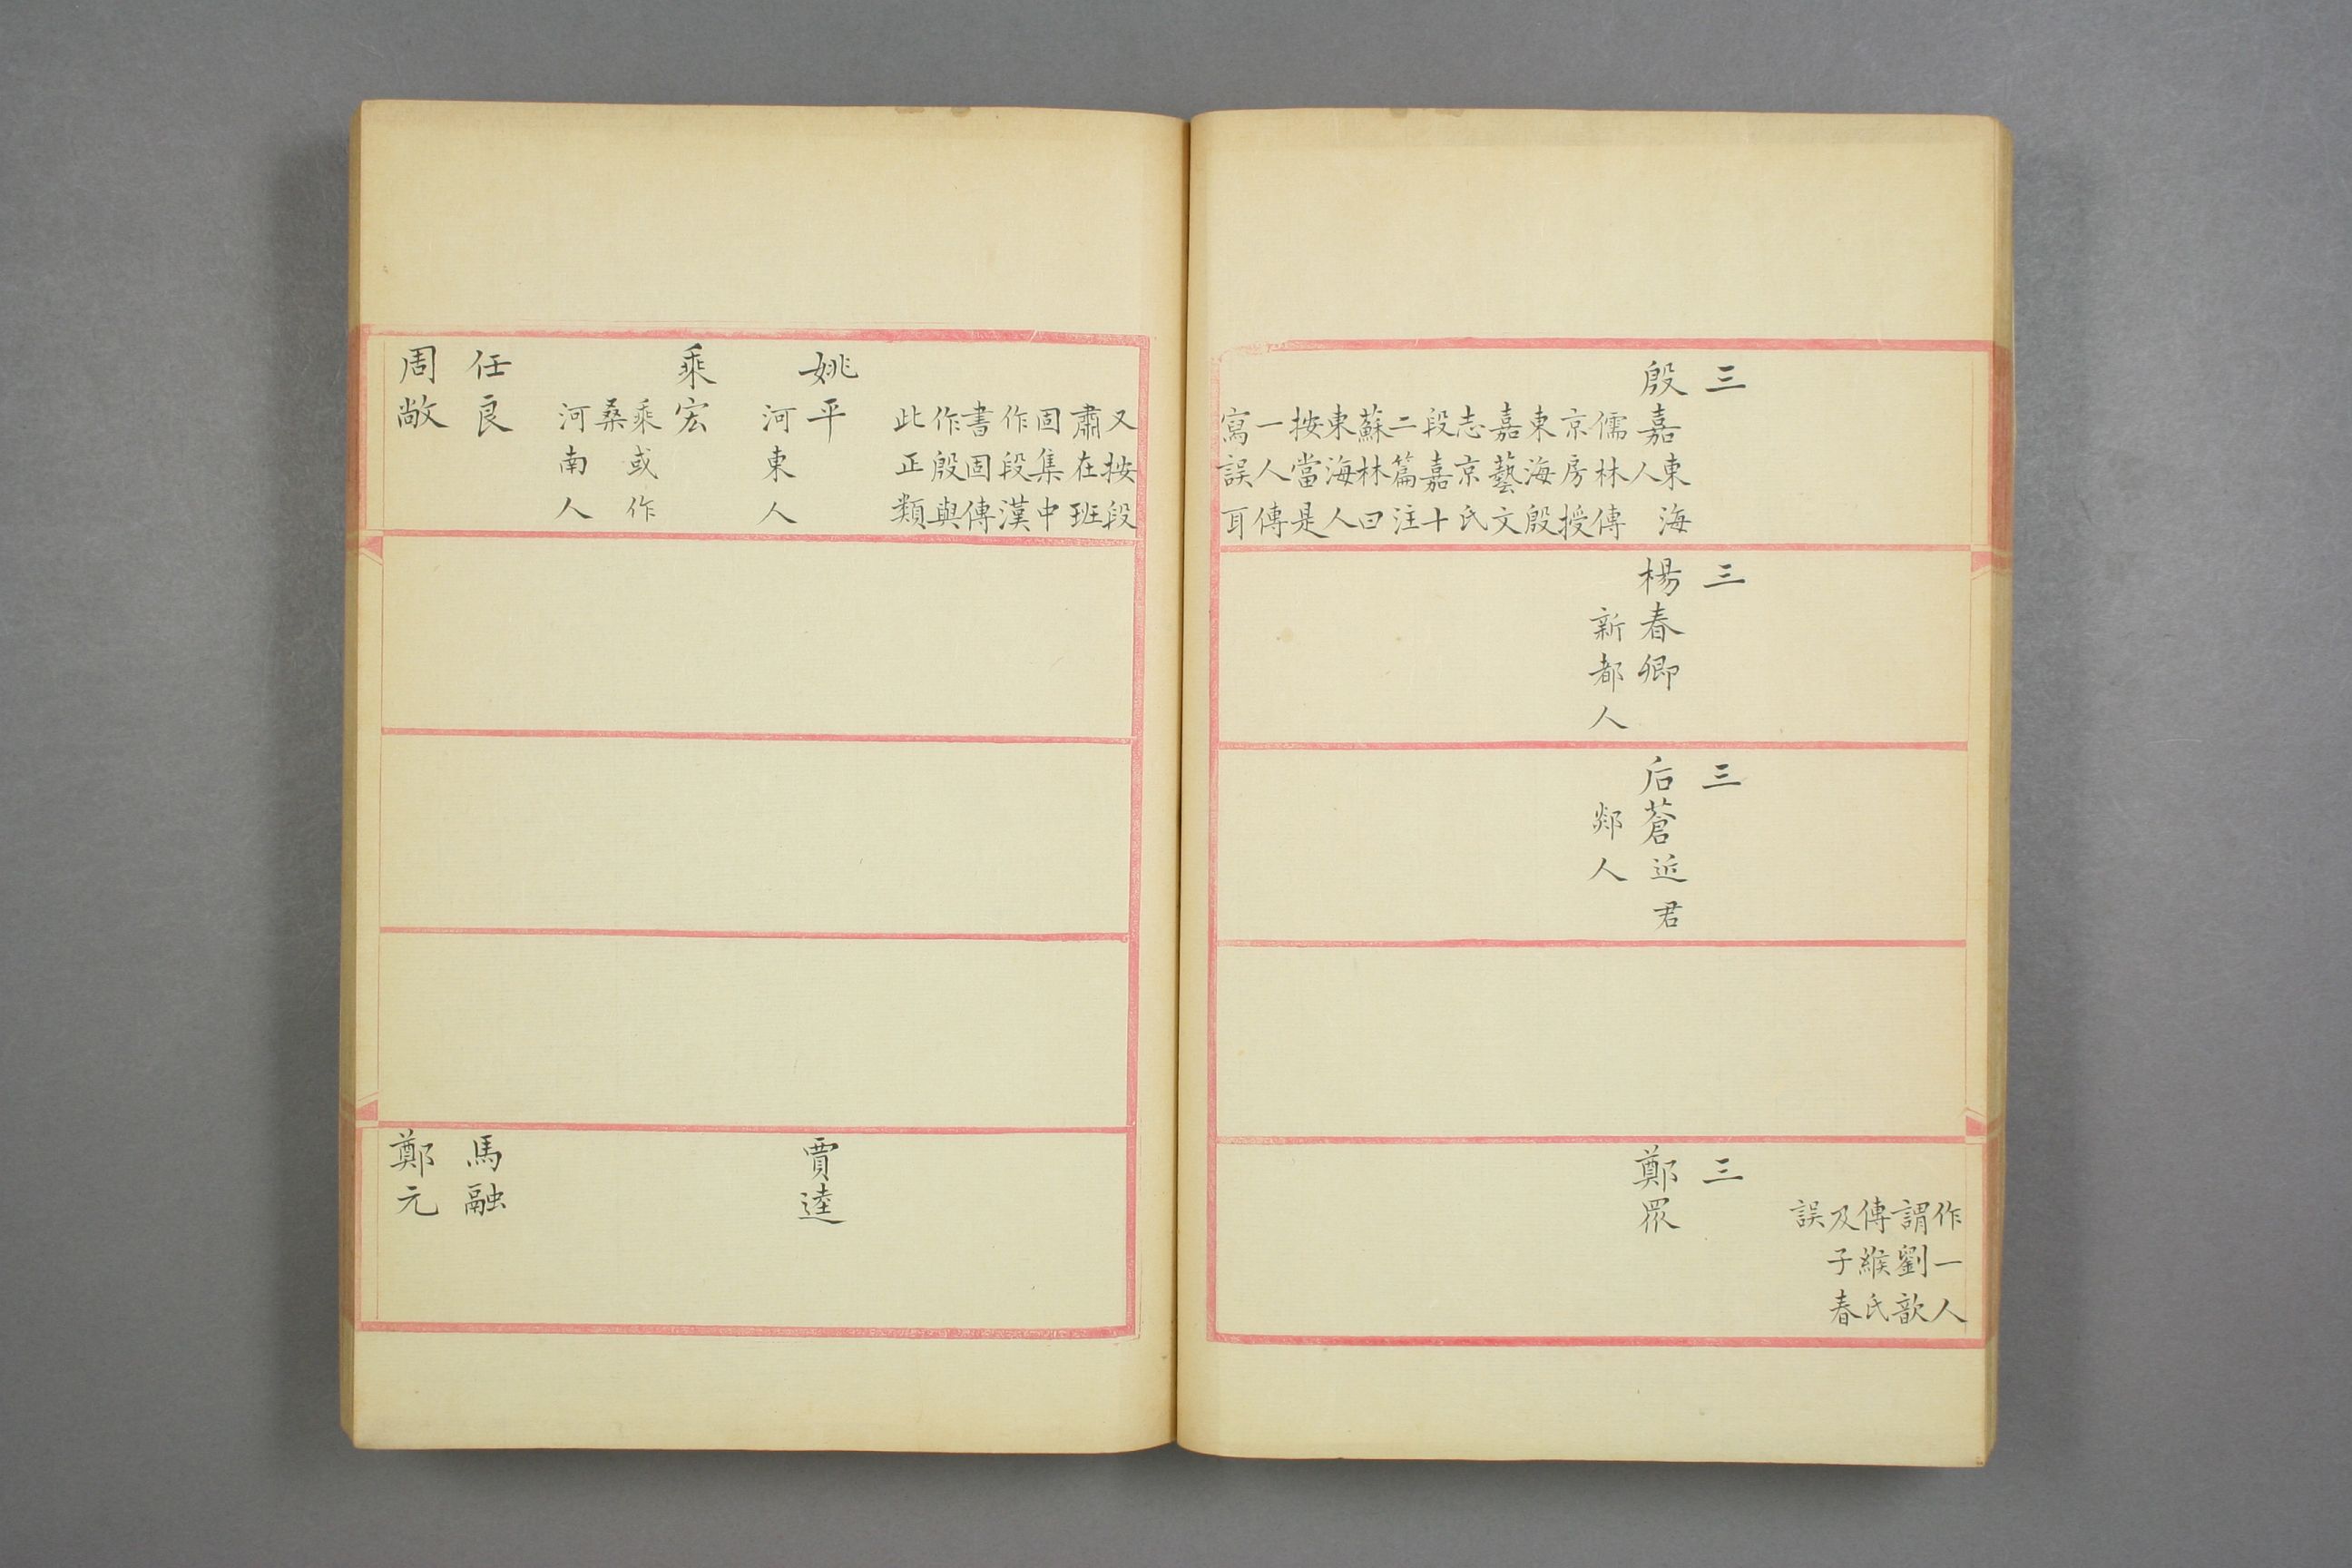 三
殷嘉東海
人
儒林傳
京房授
東海殷
嘉藝文
志京氏
段嘉十
二篇注
蘇林曰
東海人
按當是
一人傳
寫誤耳
三
楊春卿
新都人
三
后蒼近君
郯人
作一人
謂劉歆
傳緱氏
及子春
誤
三
鄭眾
又按段
肅在班
固集中
作段漢
書固傳
作殷與
此正類
姚平
河東人
乘宏
乘或作
桑
河南人
任良
周敞
賈逵
馬融
鄭元